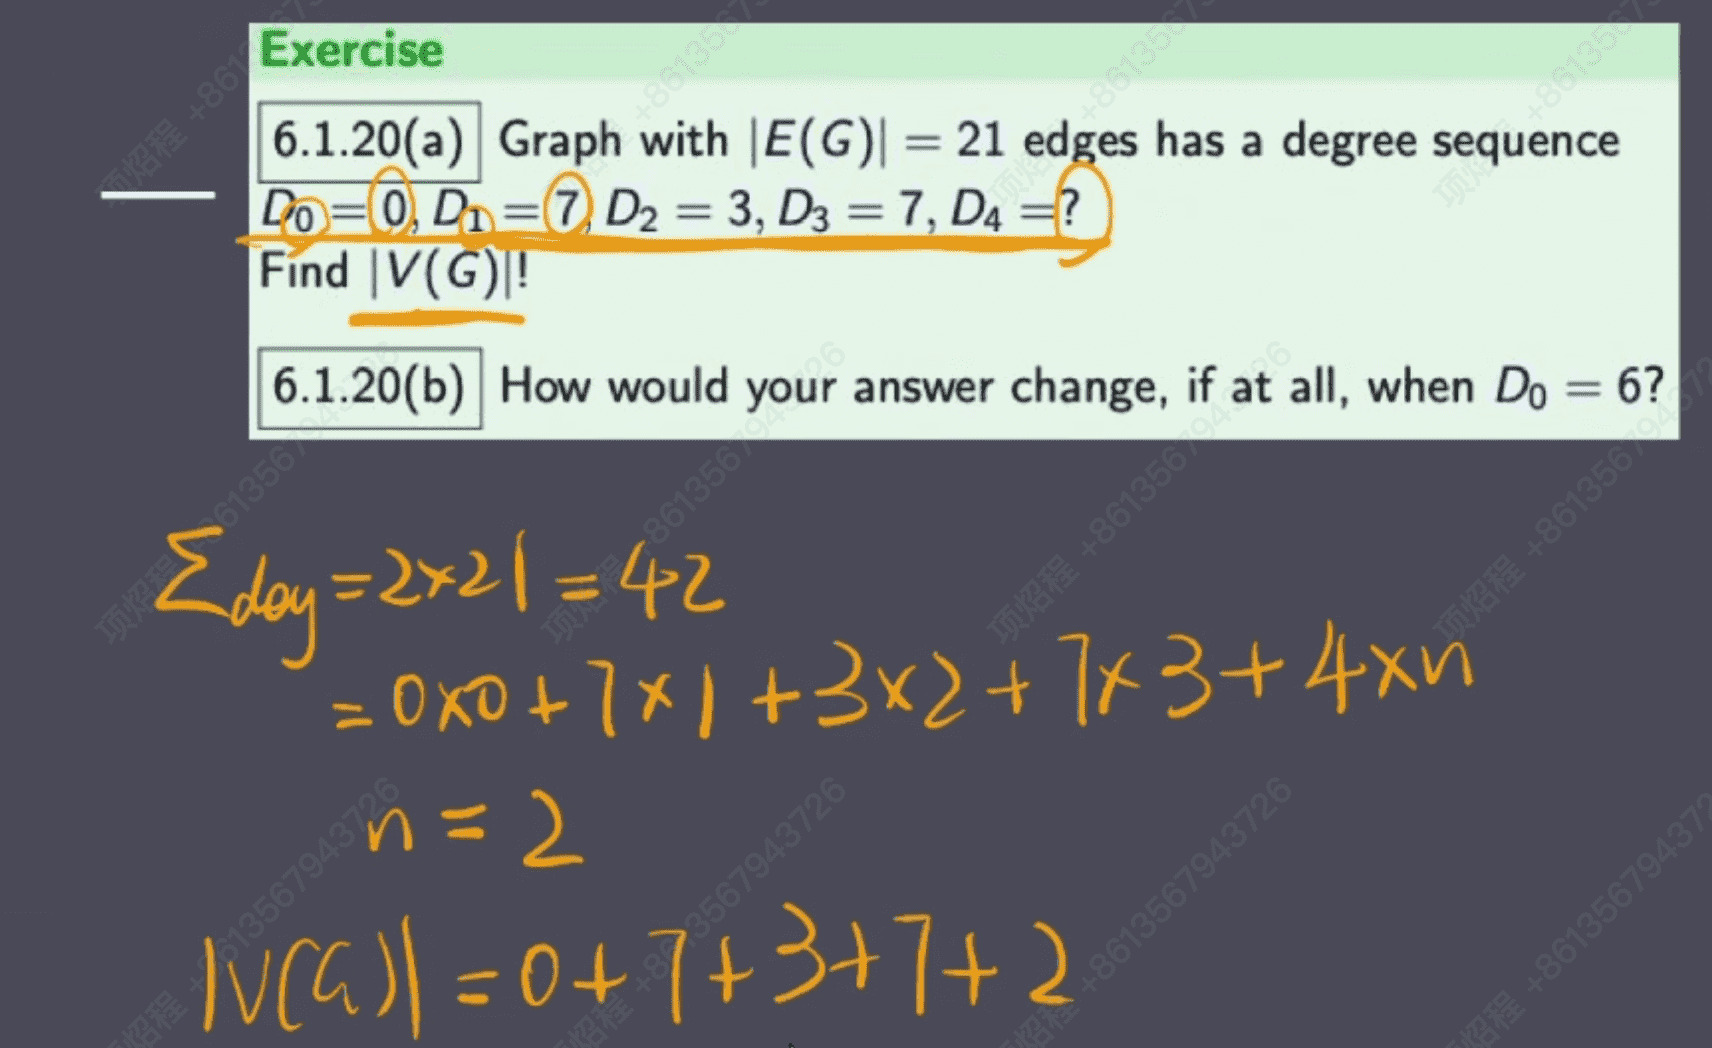 Exercise
6.1.20(a) Graph with |E(G)| = 21 edges has a degree sequence
D₀ = 0, D₁ = 7, D₂ = 3, D₃ = 7, D₄ =?
Find |V(G)|!
6.1.20(b) How would your answer change, if at all, when D₀ = 6?
Σdeg = 2×21 = 42
= 0×0 + 7×1 + 3×2 + 7×3 + 4×n
n = 2
|V(G)| = 0+7+3+7+2
项焰程 +8613567943726